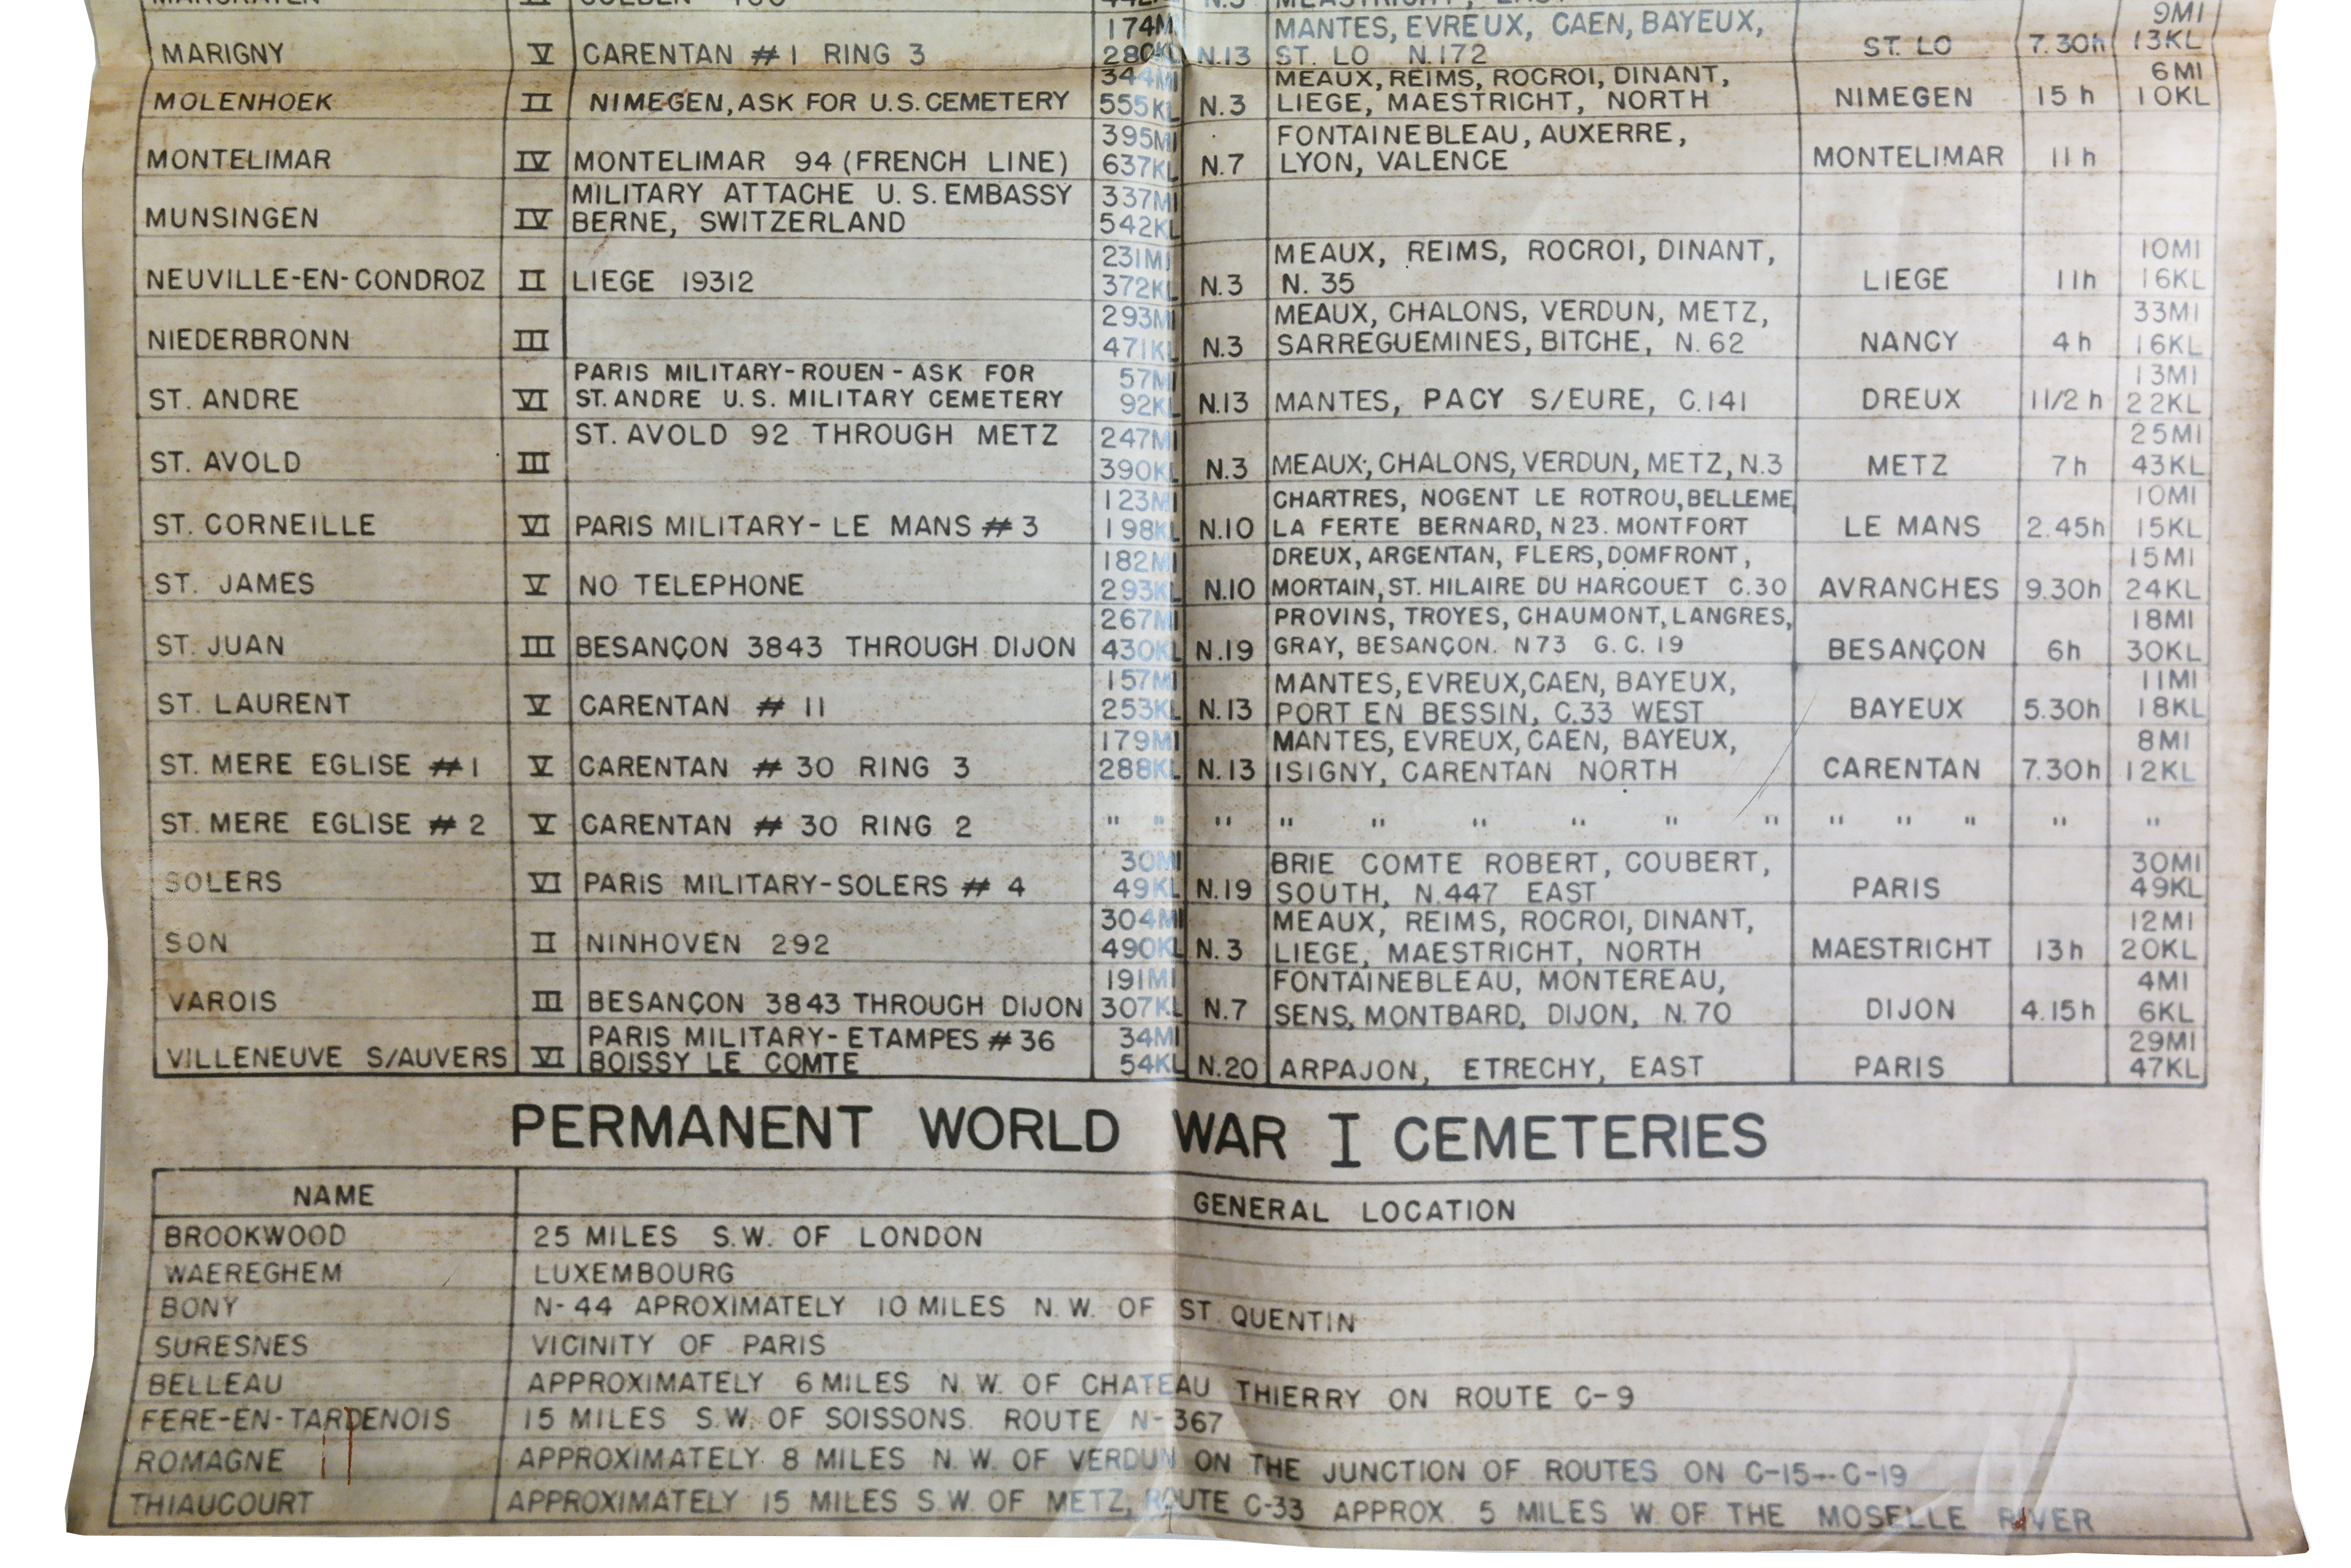 MARGRATEN II N.3 MEASTRICHT, EAST
174MI MANTES, EVREUX, CAEN, BAYEUX, 9MI
MARIGNY V CARENTAN # 1 RING 3 280KL N.13 ST. LO N.172 ST. LO 7.30h 13KL
344MI MEAUX, REIMS, ROCROI, DINANT, 6MI
MOLENHOEK II NIMEGEN, ASK FOR U.S. CEMETERY 555KL N.3 LIEGE, MAESTRICHT, NORTH NIMEGEN 15 h 10KL
395MI FONTAINEBLEAU, AUXERRE,
MONTELIMAR IV MONTELIMAR 94 (FRENCH LINE) 637KL N.7 LYON, VALENCE MONTELIMAR 11 h
MILITARY ATTACHE U.S. EMBASSY 337MI
MUNSINGEN IV BERNE, SWITZERLAND 542KL
231MI MEAUX, REIMS, ROCROI, DINANT, 10MI
NEUVILLE-EN-CONDROZ II LIEGE 19312 372KL N.3 N. 35 LIEGE 11h 16KL
293MI MEAUX, CHALONS, VERDUN, METZ, 33MI
NIEDERBRONN III 471KL N.3 SARREGUEMINES, BITCHE, N. 62 NANCY 4 h 16KL
PARIS MILITARY-ROUEN - ASK FOR 57MI 13MI
ST. ANDRE VI ST. ANDRE U.S. MILITARY CEMETERY 92KL N.13 MANTES, PACY S/EURE, C.141 DREUX 11/2 h 22KL
ST. AVOLD 92 THROUGH METZ 247MI 25MI
ST. AVOLD III 390KL N.3 MEAUX, CHALONS, VERDUN, METZ, N.3 METZ 7h 43KL
123MI CHARTRES, NOGENT LE ROTROU, BELLEME 10MI
ST. CORNEILLE VI PARIS MILITARY- LE MANS # 3 198KL N.10 LA FERTE BERNARD, N 23. MONTFORT LE MANS 2.45h 15KL
182MI DREUX, ARGENTAN, FLERS, DOMFRONT, 15MI
ST. JAMES V NO TELEPHONE 293KL N.10 MORTAIN, ST. HILAIRE DU HARCOUET C.30 AVRANCHES 9.30h 24KL
267MI PROVINS, TROYES, CHAUMONT, LANGRES, 18MI
ST. JUAN III BESANÇON 3843 THROUGH DIJON 430KL N.19 GRAY, BESANÇON. N 73 G.C. 19 BESANÇON 6h 30KL
157MI MANTES, EVREUX, CAEN, BAYEUX, 11MI
ST. LAURENT V CARENTAN # 11 253KL N.13 PORT EN BESSIN, C.33 WEST BAYEUX 5.30h 18KL
179MI MANTES, EVREUX, CAEN, BAYEUX, 8MI
ST. MERE EGLISE # 1 V CARENTAN # 30 RING 3 288KL N.13 ISIGNY, CARENTAN NORTH CARENTAN 7.30h 12KL
ST. MERE EGLISE # 2 V CARENTAN # 30 RING 2 " " " " " " " " " " " " " "
30MI BRIE COMTE ROBERT, COUBERT, 30MI
SOLERS VI PARIS MILITARY-SOLERS # 4 49KL N.19 SOUTH, N.447 EAST PARIS 49KL
304MI MEAUX, REIMS, ROCROI, DINANT, 12MI
SON II NINHOVEN 292 490KL N.3 LIEGE, MAESTRICHT, NORTH MAESTRICHT 13h 20KL
191MI FONTAINEBLEAU, MONTEREAU, 4MI
VAROIS III BESANÇON 3843 THROUGH DIJON 307KL N.7 SENS, MONTBARD, DIJON, N.70 DIJON 4.15h 6KL
PARIS MILITARY- ETAMPES # 36 34MI 29MI
VILLENEUVE S/AUVERS VI BOISSY LE COMTE 54KL N.20 ARPAJON, ETRECHY, EAST PARIS 47KL
PERMANENT WORLD WAR I CEMETERIES
NAME GENERAL LOCATION
BROOKWOOD 25 MILES S.W. OF LONDON
WAEREGHEM LUXEMBOURG
BONY N-44 APROXIMATELY 10 MILES N.W. OF ST. QUENTIN
SURESNES VICINITY OF PARIS
BELLEAU APPROXIMATELY 6 MILES N.W. OF CHATEAU THIERRY ON ROUTE C-9
FERE-EN-TARDENOIS 15 MILES S.W. OF SOISSONS. ROUTE N-367
ROMAGNE APPROXIMATELY 8 MILES N.W. OF VERDUN ON THE JUNCTION OF ROUTES ON C-15--C-19
THIAUCOURT APPROXIMATELY 15 MILES S.W. OF METZ, ROUTE C-33 APPROX. 5 MILES W. OF THE MOSELLE RIVER